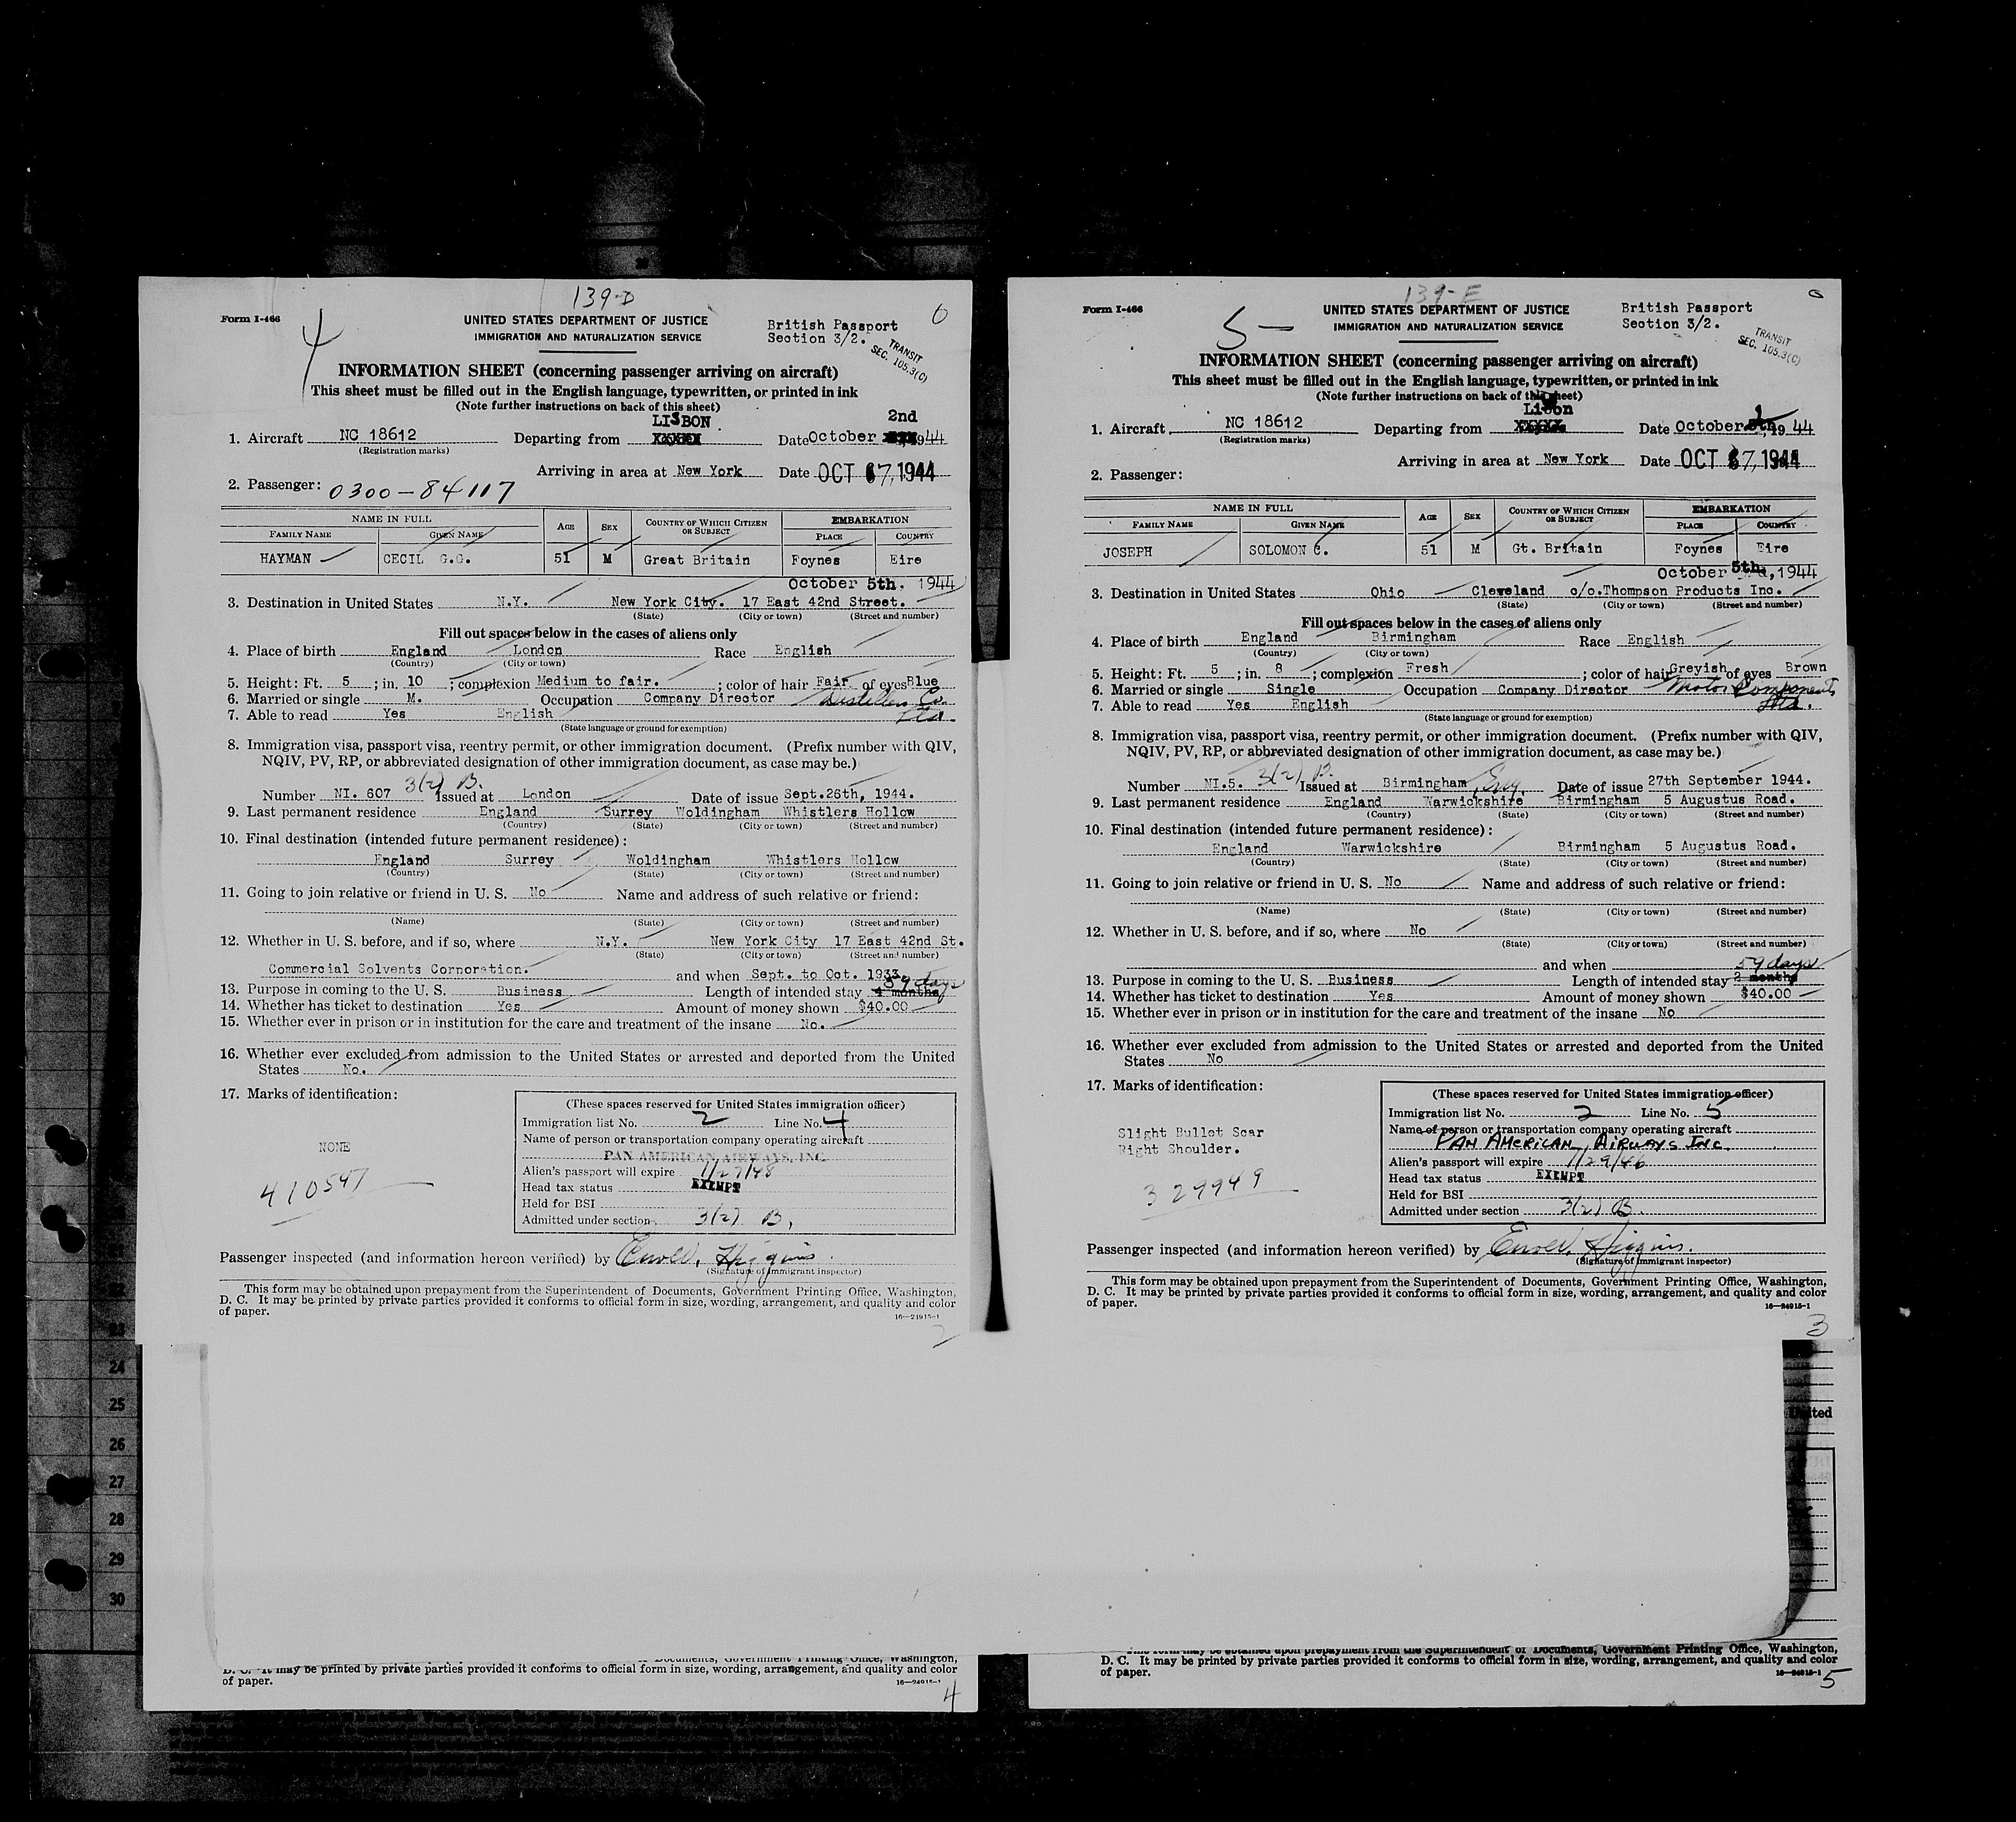 139-D
Form I-466
4
UNITED STATES DEPARTMENT OF JUSTICE
IMMIGRATION AND NATURALIZATION SERVICE
British Passport
Section 3/2.
0
TRANSIT
SEC. 105.3(C)
INFORMATION SHEET (concerning passenger arriving on aircraft)
This sheet must be filled out in the English language, typewritten, or printed in ink
(Note further instructions on back of this sheet)
LISBON 2nd
1. Aircraft NC 18612 Departing from XXXXX Date October 1944
(Registration marks)
Arriving in area at New York Date OCT 7, 1944
2. Passenger: 0300-84117
NAME IN FULL AGE SEX COUNTRY OF WHICH CITIZEN OR SUBJECT EMBARKATION
FAMILY NAME GIVEN NAME PLACE COUNTRY
HAYMAN CECIL G.G. 51 M Great Britain Foynes Eire
October 5th. 1944
3. Destination in United States N.Y. New York City. 17 East 42nd Street.
(State) (City or town) (Street and number)
Fill out spaces below in the cases of aliens only
4. Place of birth England London Race English
(Country) (City or town)
5. Height: Ft. 5 ; in. 10 ; complexion Medium to fair. ; color of hair Fair of eyes Blue
6. Married or single M. Occupation Company Director Distillers Co.
7. Able to read Yes English Ltd.
(State language or ground for exemption)
8. Immigration visa, passport visa, reentry permit, or other immigration document. (Prefix number with QIV,
NQIV, PV, RP, or abbreviated designation of other immigration document, as case may be.)
3(2) B.
Number NI. 607 Issued at London Date of issue Sept.26th, 1944.
9. Last permanent residence England Surrey Woldingham Whistlers Hollow
(Country) (State) (City or town) (Street and number)
10. Final destination (intended future permanent residence):
England Surrey Woldingham Whistlers Hollow
(Country) (State) (City or town) (Street and number)
11. Going to join relative or friend in U. S. No Name and address of such relative or friend:
(Name) (State) (City or town) (Street and number)
12. Whether in U. S. before, and if so, where N.Y. New York City 17 East 42nd St.
(State) (City or town) (Street and number)
Commercial Solvents Corporation. and when Sept. to Oct. 1933
59 days
13. Purpose in coming to the U. S. Business Length of intended stay 4 months
14. Whether has ticket to destination Yes Amount of money shown $40.00
15. Whether ever in prison or in institution for the care and treatment of the insane No.
16. Whether ever excluded from admission to the United States or arrested and deported from the United
States No.
17. Marks of identification:
NONE
410547
(These spaces reserved for United States immigration officer)
Immigration list No. 2 Line No. 4
Name of person or transportation company operating aircraft
PAN AMERICAN AIRWAYS, INC.
Alien's passport will expire 1/27/48
Head tax status EXEMPT
Held for BSI
Admitted under section 3(2) B.
Passenger inspected (and information hereon verified) by Higgins.
(Signature of immigrant inspector)
This form may be obtained upon prepayment from the Superintendent of Documents, Government Printing Office, Washington,
D. C. It may be printed by private parties provided it conforms to official form in size, wording, arrangement, and quality and color
of paper.
16—24915-1
2
Documents, Government Printing Office, Washington,
D. C. It may be printed by private parties provided it conforms to official form in size, wording, arrangement, and quality and color
of paper.
16—24915-1
4
23
24
25
26
27
28
29
30
139-E
Form I-466
5-
UNITED STATES DEPARTMENT OF JUSTICE
IMMIGRATION AND NATURALIZATION SERVICE
British Passport
Section 3/2.
0
TRANSIT
SEC. 105.3(C)
INFORMATION SHEET (concerning passenger arriving on aircraft)
This sheet must be filled out in the English language, typewritten, or printed in ink
(Note further instructions on back of this sheet)
Lisbon
1. Aircraft NC 18612 Departing from XXXXX Date October 1944
(Registration marks)
Arriving in area at New York Date OCT 7, 1944
2. Passenger:
NAME IN FULL AGE SEX COUNTRY OF WHICH CITIZEN OR SUBJECT EMBARKATION
FAMILY NAME GIVEN NAME PLACE COUNTRY
JOSEPH SOLOMON C. 51 M Gt. Britain Foynes Eire
October 5th, 1944
3. Destination in United States Ohio Cleveland c/o.Thompson Products Inc.
(State) (City or town) (Street and number)
Fill out spaces below in the cases of aliens only
4. Place of birth England Birmingham Race English
(Country) (City or town)
5. Height: Ft. 5 ; in. 8 ; complexion Fresh ; color of hair Greyish of eyes Brown
6. Married or single Single Occupation Company Director Motor Components
7. Able to read Yes English Ltd.
(State language or ground for exemption)
8. Immigration visa, passport visa, reentry permit, or other immigration document. (Prefix number with QIV,
NQIV, PV, RP, or abbreviated designation of other immigration document, as case may be.)
3(2) B.
Number NI.5. Issued at Birmingham, Eng. Date of issue 27th September 1944.
9. Last permanent residence England Warwickshire Birmingham 5 Augustus Road.
(Country) (State) (City or town) (Street and number)
10. Final destination (intended future permanent residence):
England Warwickshire Birmingham 5 Augustus Road.
(Country) (State) (City or town) (Street and number)
11. Going to join relative or friend in U. S. No Name and address of such relative or friend:
(Name) (State) (City or town) (Street and number)
12. Whether in U. S. before, and if so, where No
(State) (City or town) (Street and number)
and when
59 days
13. Purpose in coming to the U. S. Business Length of intended stay 2 months
14. Whether has ticket to destination Yes Amount of money shown $40.00
15. Whether ever in prison or in institution for the care and treatment of the insane No
16. Whether ever excluded from admission to the United States or arrested and deported from the United
States No
17. Marks of identification:
Slight Bullet Scar
Right Shoulder.
329949
(These spaces reserved for United States immigration officer)
Immigration list No. 2 Line No. 5
Name of person or transportation company operating aircraft
PAN AMERICAN AIRWAYS INC.
Alien's passport will expire 7/29/46
Head tax status EXEMPT
Held for BSI
Admitted under section 3(2) B.
Passenger inspected (and information hereon verified) by Higgins.
(Signature of immigrant inspector)
This form may be obtained upon prepayment from the Superintendent of Documents, Government Printing Office, Washington,
D. C. It may be printed by private parties provided it conforms to official form in size, wording, arrangement, and quality and color
of paper.
16—24915-1
3
United
This form may be obtained upon prepayment from the Superintendent of Documents, Government Printing Office, Washington,
D. C. It may be printed by private parties provided it conforms to official form in size, wording, arrangement, and quality and color
of paper.
16—24915-1
5